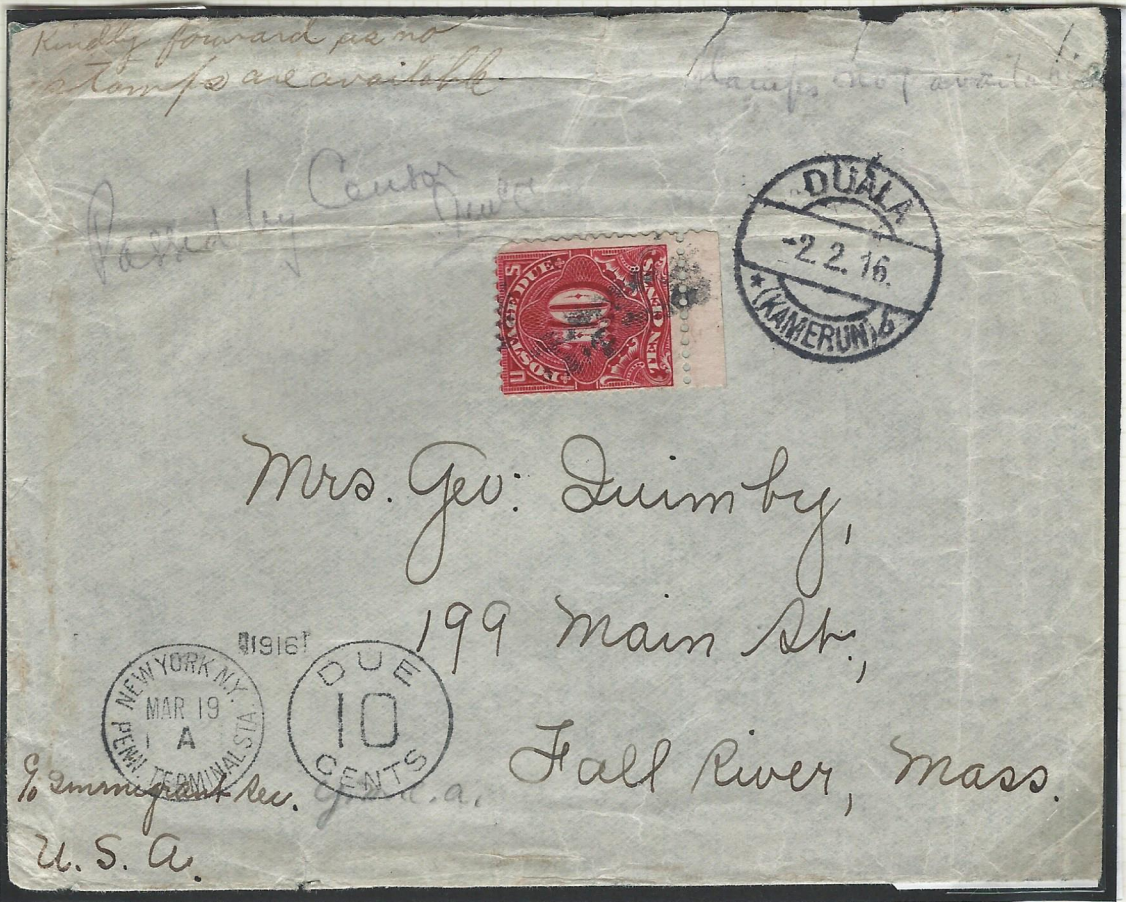 Kindly forward as no
stamps are available.
Stamps not available
Passed by Censor
DUALA
-2.2.16.
* (KAMERUN) b
U.S. POSTAGE DUE
10
TEN CENTS
Mrs. Geo: Quimby,
199 Main St.,
Fall River, Mass.
1916
NEW YORK N.Y.
MAR 19
A
PENN. TERMINAL STA
DUE
10
CENTS
c/o Immigrant Sec.
U. S. A.